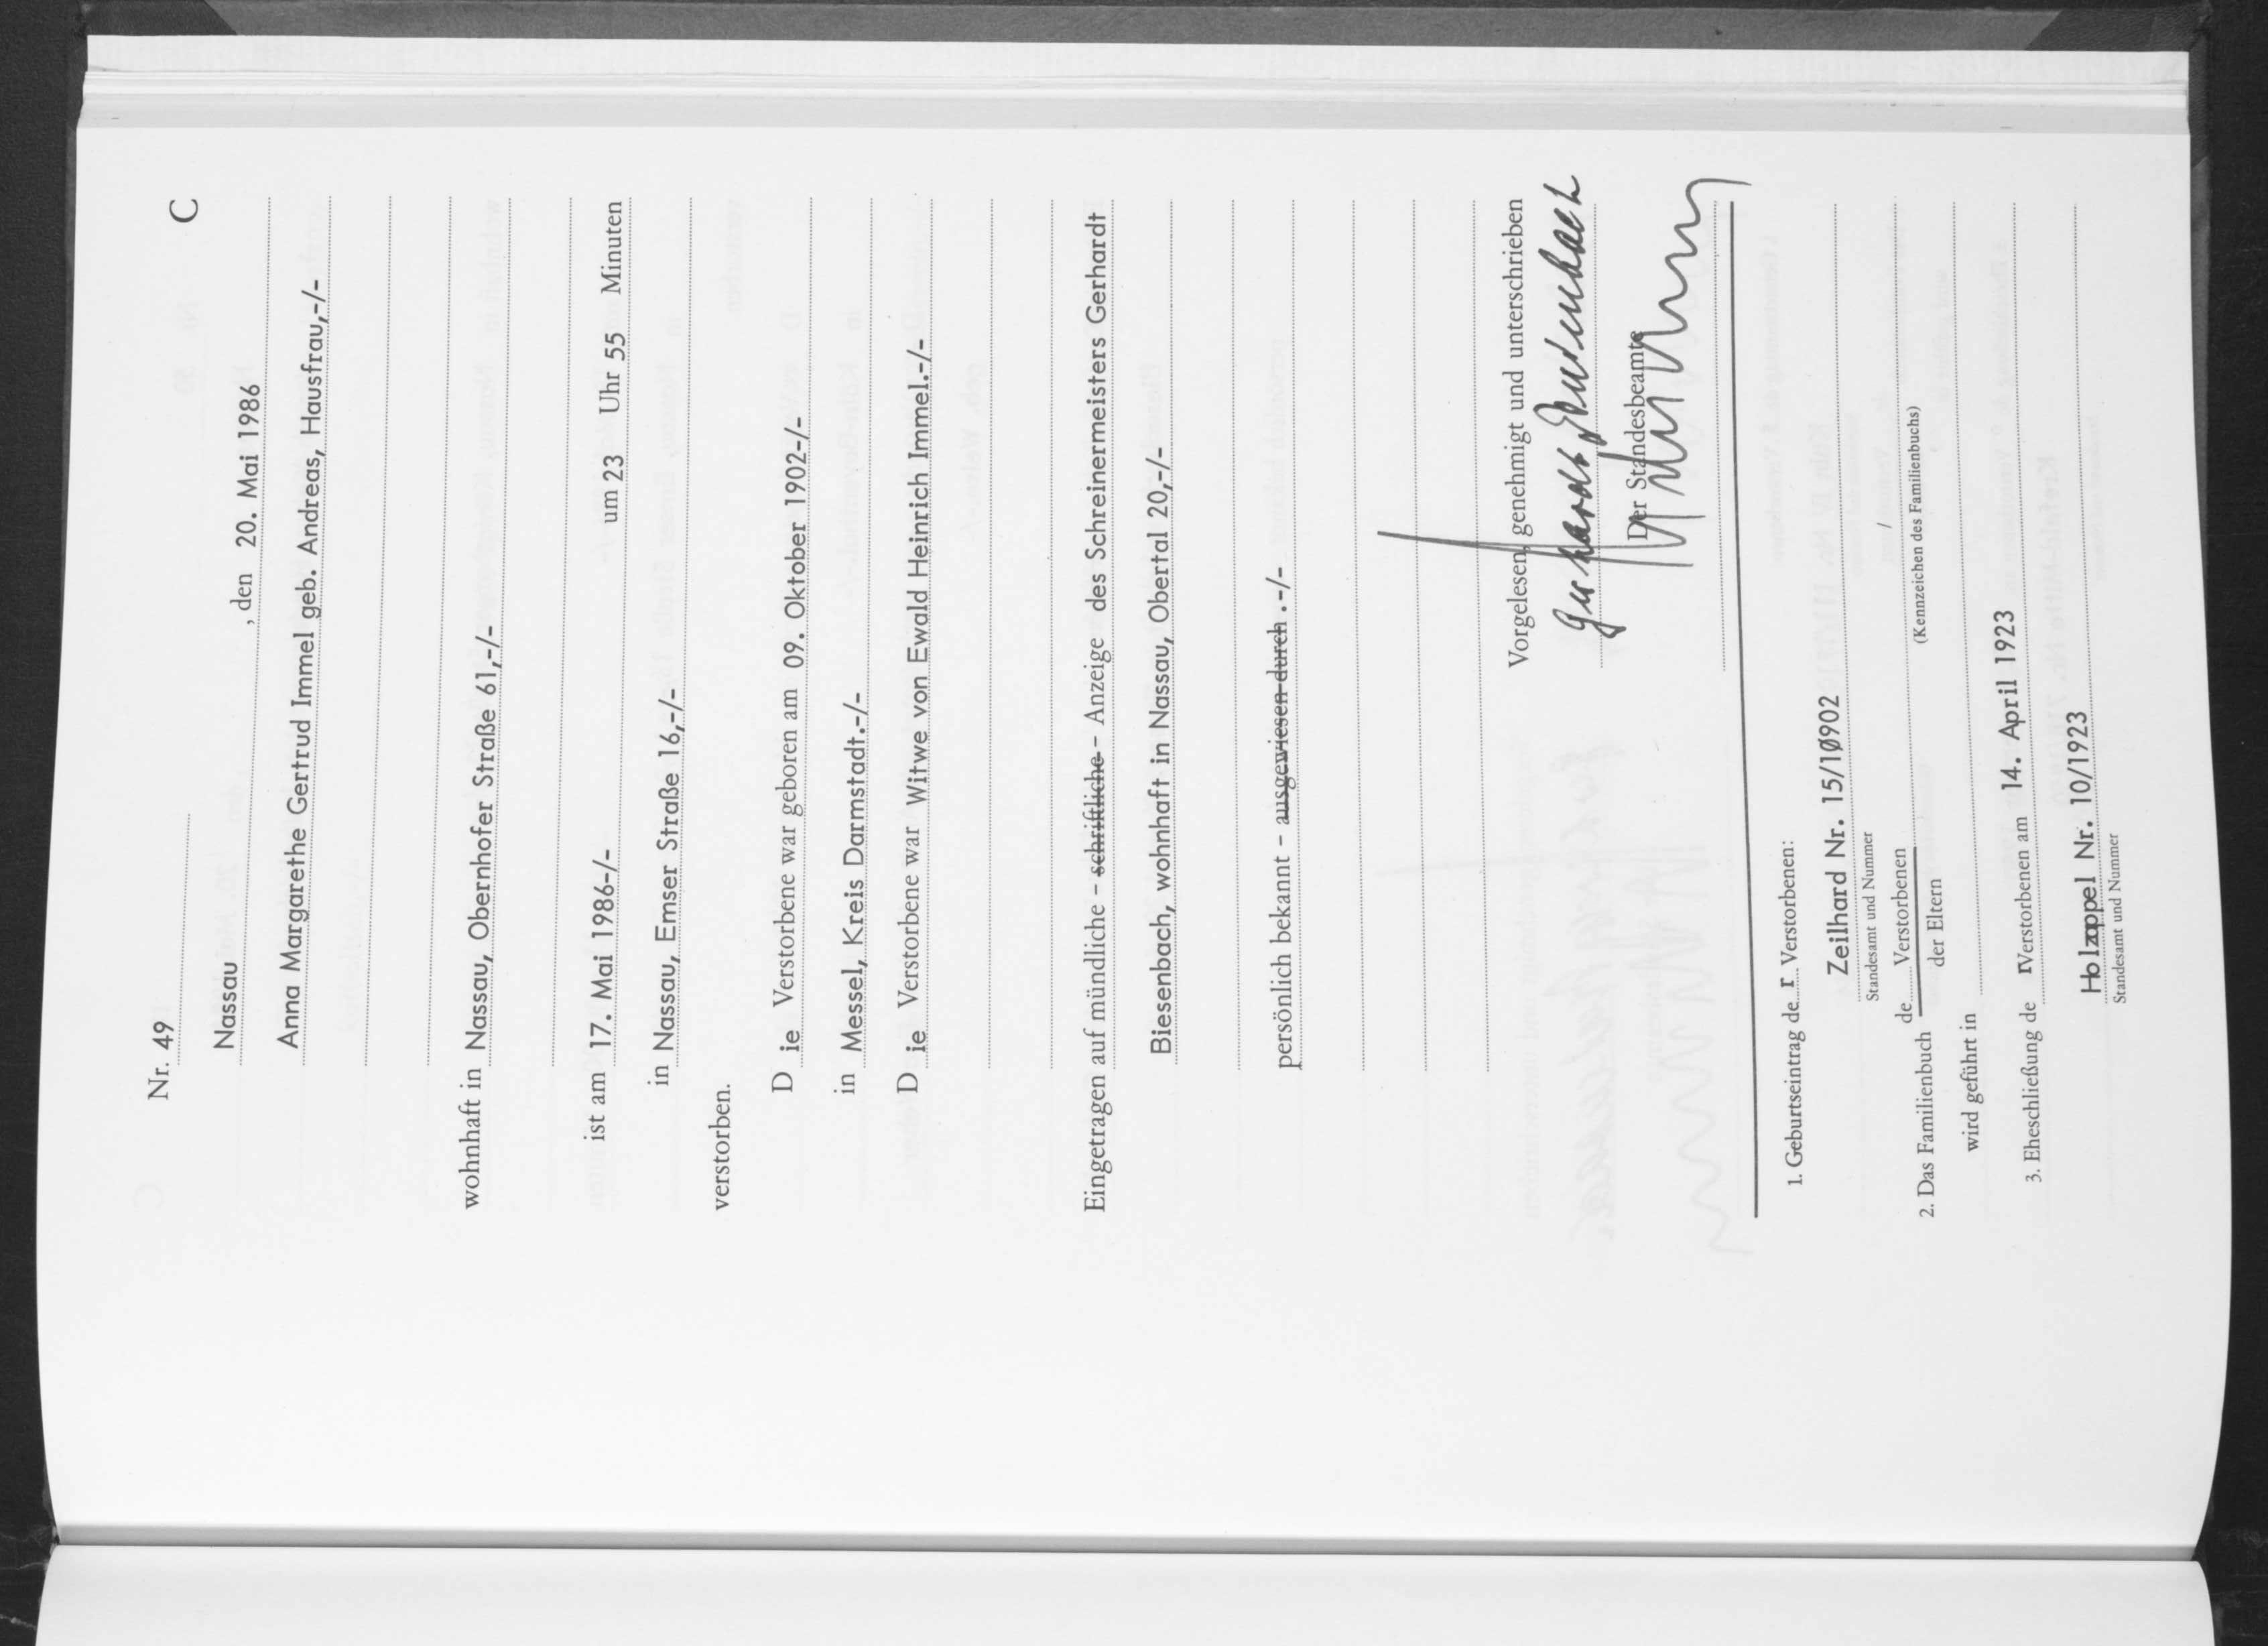 Nr. 49 C
Nassau , den 20. Mai 1986
Anna Margarethe Gertrud Immel geb. Andreas, Hausfrau,-/-
wohnhaft in Nassau, Obernhofer Straße 61,-/-
ist am 17. Mai 1986-/- um 23 Uhr 55 Minuten
in Nassau, Emser Straße 16,-/-
verstorben.
D ie Verstorbene war geboren am 09. Oktober 1902-/-
in Messel, Kreis Darmstadt.-/-
D ie Verstorbene war Witwe von Ewald Heinrich Immel.-/-
Eingetragen auf mündliche - schriftliche - Anzeige des Schreinermeisters Gerhardt
Biesenbach, wohnhaft in Nassau, Obertal 20,-/-
persönlich bekannt - ausgewiesen durch .-/-
Vorgelesen, genehmigt und unterschrieben
Der Standesbeamte
1. Geburtseintrag de r Verstorbenen:
Zeilhard Nr. 15/1902
Standesamt und Nummer
2. Das Familienbuch de Verstorbenen /
der Eltern (Kennzeichen des Familienbuchs)
wird geführt in
3. Eheschließung de r Verstorbenen am 14. April 1923
Holzappel Nr. 10/1923
Standesamt und Nummer